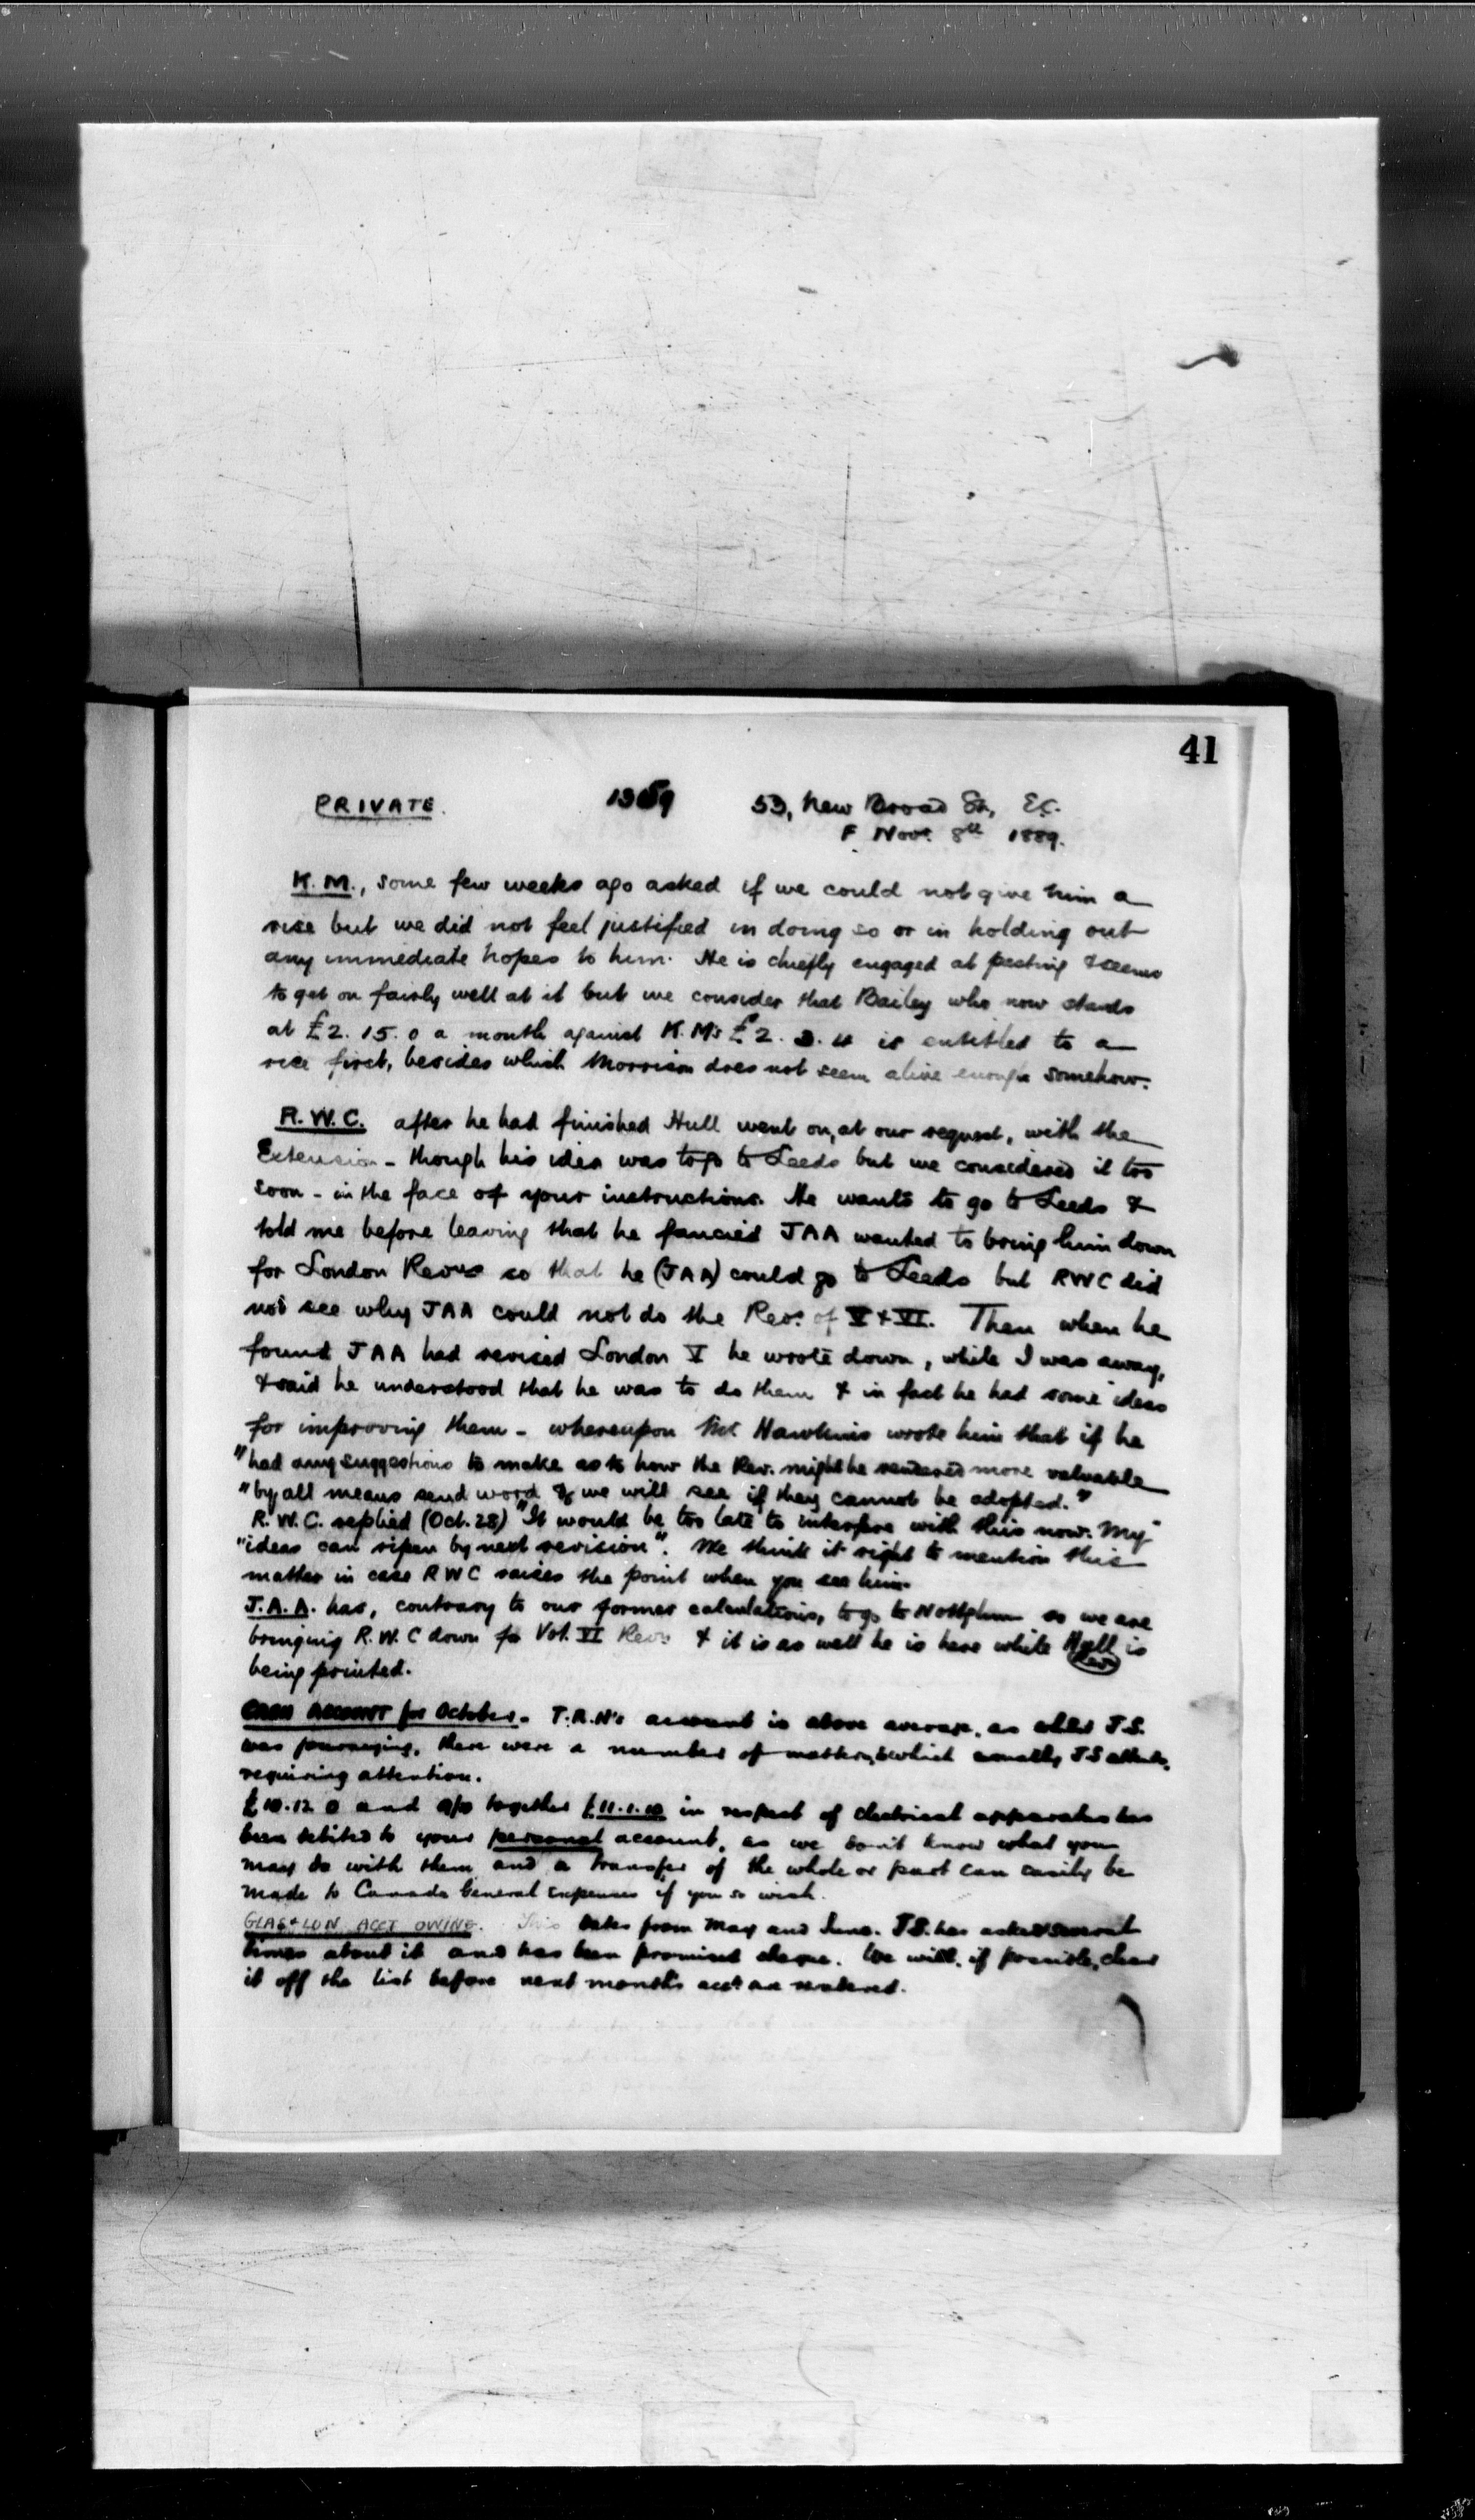 41
PRIVATE. 53, New Broad St., E.C.
F Novr. 8th 1889.
K.M., some few weeks ago asked if we could not give him a
rise but we did not feel justified in doing so or in holding out
any immediate hopes to him. He is chiefly engaged at pasting & seems
to get on fairly well at it but we consider that Bailey who now stands
at £2. 15. 0 a month against K.M's £2. 3. 4 is entitled to a
rise first, besides which Morrison does not seem alive enough somehow.
R.W.C. after he had finished Hull went on, at our request, with the
Extension - though his idea was to go to Leeds but we considered it too
soon - in the face of your instructions. He wants to go to Leeds &
told me before leaving that he fancied JAA wanted to bring him down
for London Revns so that he (JAA) could go to Leeds but RWC did
not see why JAA could not do the Rev. of V & VI. Then when he
found JAA had revised London V he wrote down, while I was away,
& said he understood that he was to do them & in fact he had some ideas
for improving them - whereupon Mr Hawkins wrote him that if he
"had any suggestions to make as to how the Rev. might be rendered more valuable
"by all means send word & we will see if they cannot be adopted."
R.W.C. replied (Oct. 28) "It would be too late to interfere with this now. My
"ideas can ripen by next revision". We think it right to mention this
matter in case RWC raises the point when you see him.
J.A.A. has, contrary to our former calculations, to go to Nottghm so we are
bringing R.W.C down for Vol. VI Revn & it is as well he is here while Hull is
being printed.
CASH ACCOUNT for October. T.R.N's account is above average, as whilst J.S.
was journeying, there were a number of matters, to which usually JS attends,
requiring attention.
£10.12.0 and a/c together £11.1.10 in respect of electrical apparatus has
been debited to your personal account, as we don't know what you
may do with them and a transfer of the whole or part can easily be
made to Canada General Expenses if you so wish.
GLAS & LON ACCT OWING. This dates from May and June. JS. has asked several
times about it and has been promised cheque. We will, if possible, clear
it off the list before next month's accts are rendered.